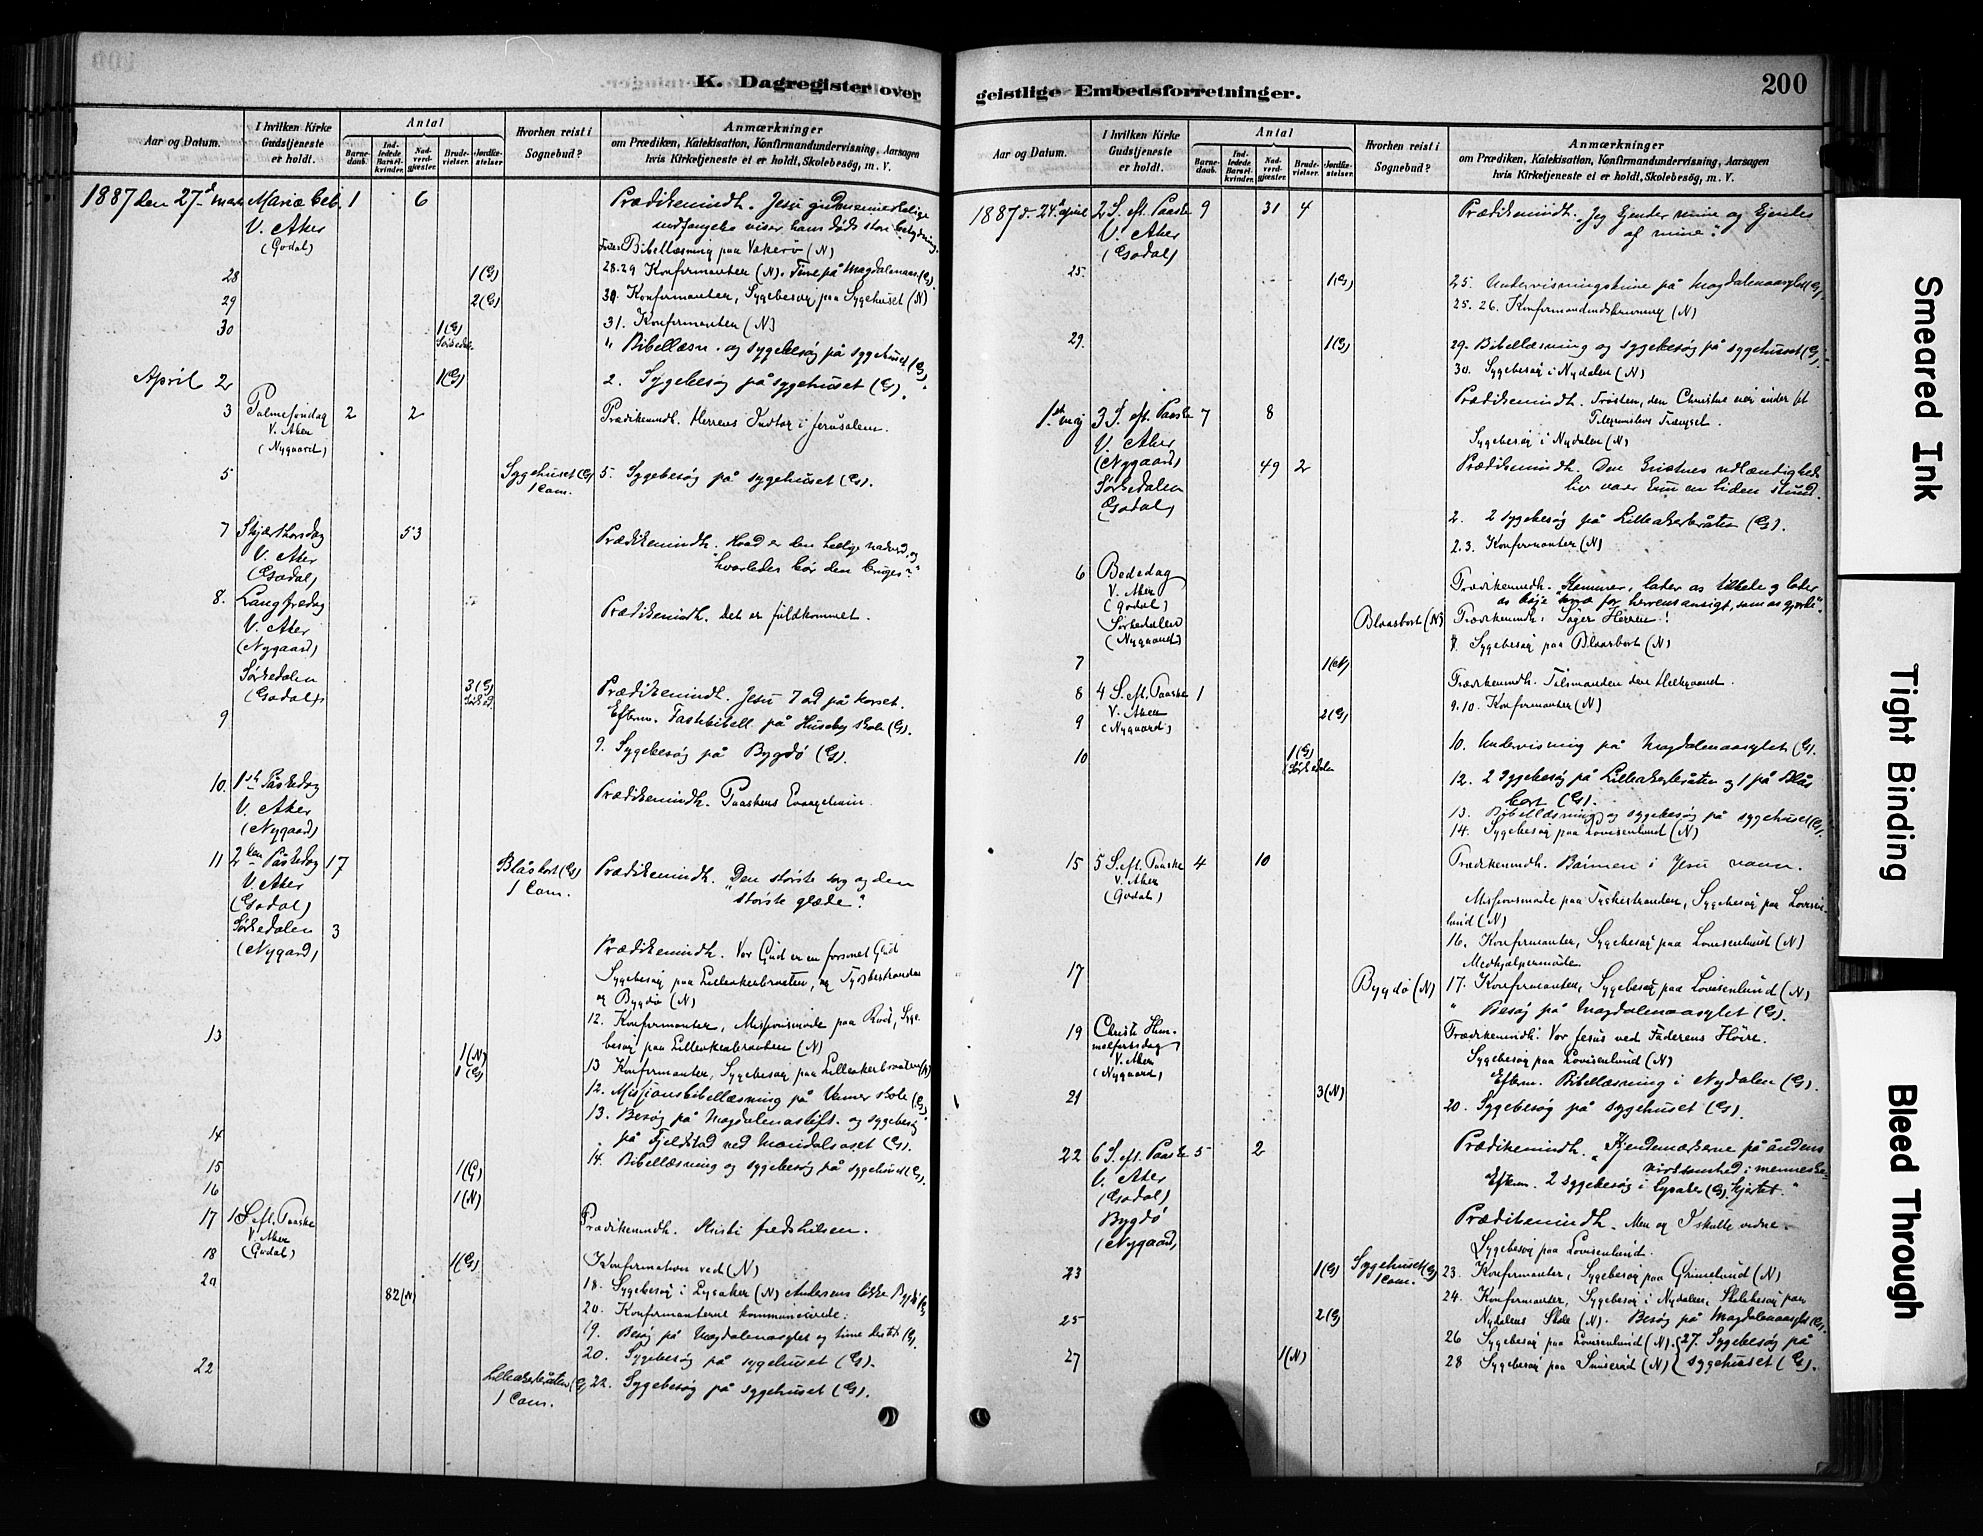 K. Dagregister over
Aar og Datum.
I hvilken Kirke Gudstjeneste er holdt.
Antal
Barnedaab.
Indledede Barselkvinder.
Nadverdgjæster.
Brudevielser.
Jordfæstelser
Hvorhen reist i Sognebud?
Anmærkninger
om Prædiken, Katekisation, Konfirmandundervisning, Aarsagen
hvis Kirketjeneste ei er holdt, Skolebesög, m. V.
1887 den 27de mars Mariæ beb. 1 6 Prædikemindh. Jesu
V. Aker
(Godal) Bibellæsning paa Vækerö (N)
28 1(G) 28.29 Konfirmanter (N). Time på Magdalenaas. (G).
29 2(G) 30. Konfirmanter, Sygebesøg paa Sygehuset (N)
30 1(G) Sørkedal. 31. Konfirmanter (N)
" Bibellæsn. og sygebesøg på sygehuset (G).
April 2 1(G) 2. Sygebesøg på sygehuset (G).
3 Palmesøndag 2 2 Prædikemndh. Herrens Indtog i Jerusalem.
V. Aker
(Nygaard)
5 Sygehuset (G) 1 Com. 5. Sygebesøg på sygehuset (G).
7 Skjærthorsdag 53 Prædikemindh. Hvad er den hellige nadverd, og
V. Aker hvorledes bør den bruges?"
(Godal)
8. Langfredag Prædikemindh. Det er fuldkommet.
V. Aker
(Nygaard)
Sørkedalen 3(G) Prædikemindh. Jesu 7 ord på korset.
(Godal) Efterm. Fastebibell. på Huseby skole (G).
9 9. Sygebesøg på Bygdö (G).
10. 1ste Påskedag Prædikemindh. Paaskens Evangelium.
V. Aker
(Nygaard)
11 2den Påskedag 17 Blåskort (G) 1 Com. Prædikemindh. "Den största sorg og den
V. Aker störste glæde".
(Godal)
Sørkedalen 3
(Nygaard) Prædikemindh. Vor Gud er en forsonet Gud
Sygebesøg paa Lilleakerbraaten, og Tyskestranden
og Bygdø (N)
12. Konfirmanter, Missionsmøde paa Röd, Syge-
13 besøg paa Lilleakerbraaten (N)
1(N) 13 Konfirmanter, Sygebesøg paa Lilleakerbraaten (N)
1(G) 12. Missionsbibellæsning på skole (G).
13. Besøg på Magdalenastift. og sygebesøg
14 på Fjeldstad ved (G).
15 1(G) 14. Bibellæsning og sygebesøg på sygehuset (G).
16 1(N)
17 1 S. eft. Paaske Prædikemndh. Kristi fredshilsen.
V. Aker
18 (Godal) 1(G) Konfirmation ved (N)
20 82(N) 18. Sygebesøg i Lysaker (N) Andersens løkke Bygdö (G)
20. Konfirmanterne kommunicerede.
19. Besøg på Magdalenaasylet og time (G).
20. Sygebesøg på sygehuset (G).
22 Lilleakerbråten (G) 1 Com. 22. Sygebesøg på sygehuset (G).
geistlige Embedsforretninger. 200
Aar og Datum.
I hvilken Kirke Gudstjeneste er holdt.
Antal
Barnedaab.
Indledede Barselkvinder.
Nadverdgjæster.
Brudevielser.
Jordfæstelser.
Hvorhen reist i Sognebud?
Anmærkninger
om Prædiken, Katekisation, Konfirmandundervisning, Aarsagen
hvis Kirketjeneste ei er holdt, Skolebesög, m. V.
1887 d. 24de april 2 S. eft. Paaske 9 31 4 Prædikemindh. "Jeg kjender mine og kjendes
V. Aker af mine".
(Godal)
25. 1(G) 25. Undervisningstime på Magdalenaasylet (G).
25. 26. Konfirmandundervisning (N)
29. 1(G) 29. Bibellæsning og sygebesøg på sygehuset (G).
30. Sygebesøg i Nydalen (N)
1ste maj 3 S. eft. Paaske 7 8 Prædikemindh. Trøsten, den Christus under
V. Aker Trængsel.
(Nygaard) Sygebesøg i Nydalen (N)
Sørkedalen 49 2 Prædikemindh. Den kristnes udlændigheds
(Godal) liv varer kun en liden stund.
2. 2 sygebesøg på Lilleakerbråten (G).
2.3. Konfirmanter (N)
6 Bededag Prædikemndh. Kommer, lader os tilbede og lader
V. Aker os bøje knæ for herrens ansigt, som os gjorde".
(Godal)
Sørkedalen Blaasbort (N) Prædikemndh. Søger Herren!
(Nygaard) 7. Sygebesøg paa Blaasbort (N)
7 1(N)
8 4 S. eft. Paaske 1 Prædikemndh. Talsmanden den Helligaand.
9 V. Aker 2(G) 9.10. Konfirmanter (N)
(Nygaard)
10 1(G) Sørkedalen 10. Undervisning på Magdalenaasylet (G).
12. 2 Sygebesøg på Lilleakerbråten og 1 på Blås
bort (G).
13. Bibellæsning og sygebesøg på sygehuset (G).
14. Sygebesøg paa Lovisenlund (N)
15 5 S. eft. Paaske 4 10 Prædikemndh. Bønnen i Jesu navn.
V. Aker
(Godal) Missionsmøde paa Tyskestranden, Sygebesøg paa Lovisen-
lund (N)
16. Konfirmanter, Sygebesøg paa Lovisenlund (N)
Medhjælpermøde
17 Bygdö (N) 17. Konfirmanter, Sygebesøg paa Lovisenlund (N)
" Besøg på Magdalenaasylet (G).
19 Christi Him- Prædikemndh. Vor Jesus ved Faderens Höire.
melfartsdag Sygebesøg paa Lovisenlund (N)
V. Aker
(Nygaard) Efterm. Bibellæsning i Nydalen (G).
21 3(N) 20. Sygebesøg på sygehuset (G).
22 6 S. eft. Paaske 5 2 Prædikemindh. "Kjendemærkerne på åndens
V. Aker virksomhed i menneske-
(Godal) Efterm. 2 sygebesøg i Lysaker (G). hjertet."
Bygdö Prædikemindh. Men og I skulle vidne.
(Nygaard) Sygebesøg paa Lovisenlund.
23 1(G) Sygehuset (G) 1 Com. 23. Konfirmanter, Sygebesøg paa Grimelund (N)
24. Konfirmanter, Sygebesøg i Nydalen, Skolebesøg paa
25 2(G) Nydalens Skole (N). Besøg på Magdalenaasylet (G).
26 Sygebesøg paa Lovisenlund (N). 27. Sygebesøg på
27 1(N) 28 Sygebesøg paa (N) sygehuset (G).
Smeared Ink
Tight Binding
Bleed Through